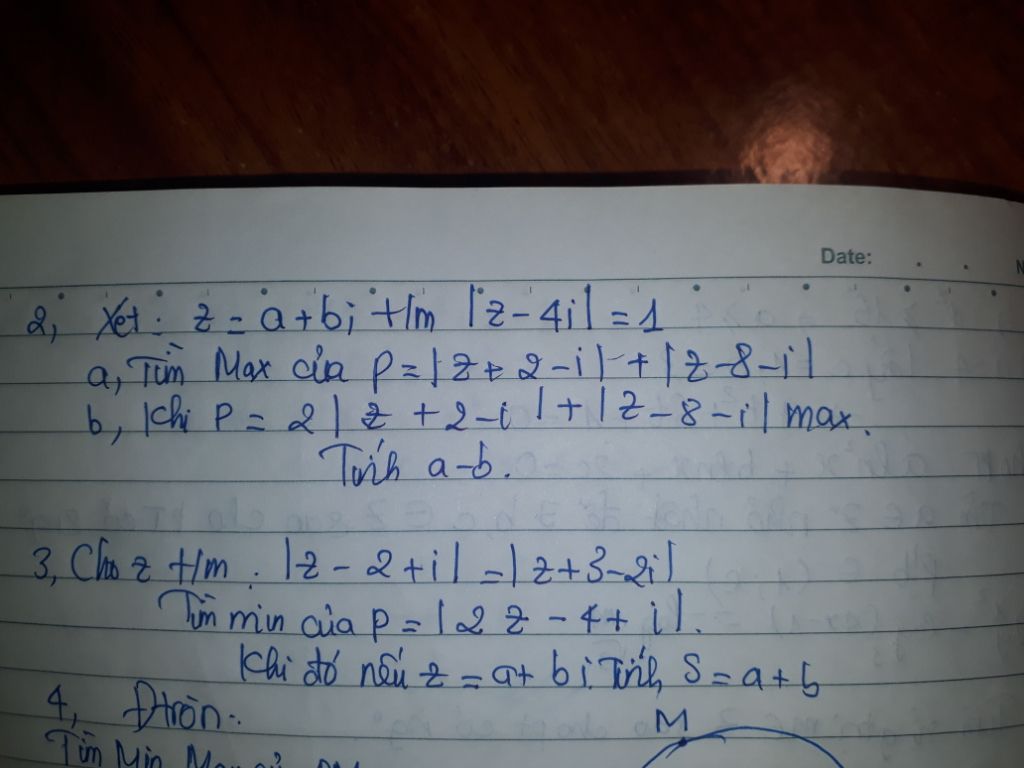 Date:
N
2, Xét: z = a + bi t/m |z - 4i| = 1
a, Tìm Max của P = |z + 2 - i| + |z - 8 - i|
b, Khi P = 2|z + 2 - i| + |z - 8 - i| max.
Tính a - b.
3, Cho z t/m. |z - 2 + i| = |z + 3 - 2i|
Tìm min của P = |2z - 4 + i|.
Khi đó nếu z = a + bi. Tính S = a + b
4, Đtròn:
M
Tìm Min, Max